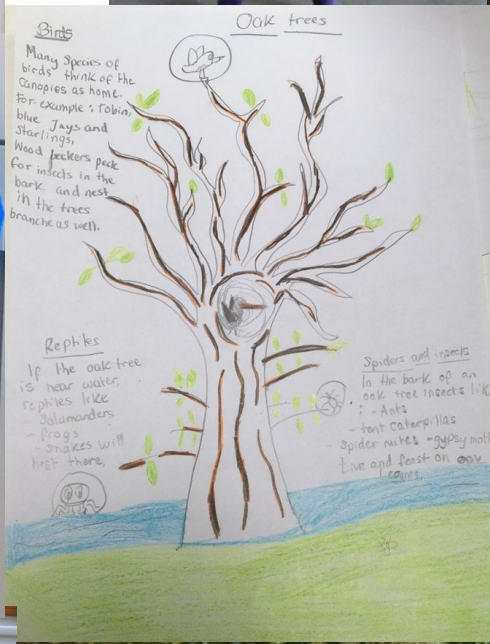 Oak trees
Birds
Many Species of
birds think of the
Canopies as home.
for example : robin,
blue Jays and
Starlings,
Wood peckers peck
for insects in the
bark and nest
in the trees
branche as well.
Reptiles
If the oak tree
is near water,
reptiles like
- Salamanders
- frogs
- snakes will
nest there,
Spiders and insects
In the bark of an
oak tree insects lik
: - Ants
- tent Caterpillas
- Spider mites - gypsy mot
Live and feast on oak